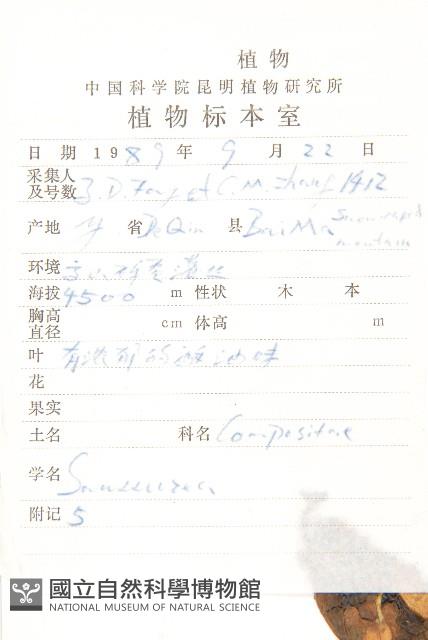 植物
中国科学院昆明植物研究所
植物标本室
日 期 1989 年 9 月 22 日
采集人
及号数 et C. M. 1412
产地 省 DeQin 县 BaiMa Snow
mountain
环境
海拔 4500 m 性状 木 本
胸高
直径 cm 体高 m
叶 有浓郁的酱油味
花
果实
土名 科名 Compositae
学名 Saussurea
附记 5
國立自然科學博物館
NATIONAL MUSEUM OF NATURAL SCIENCE